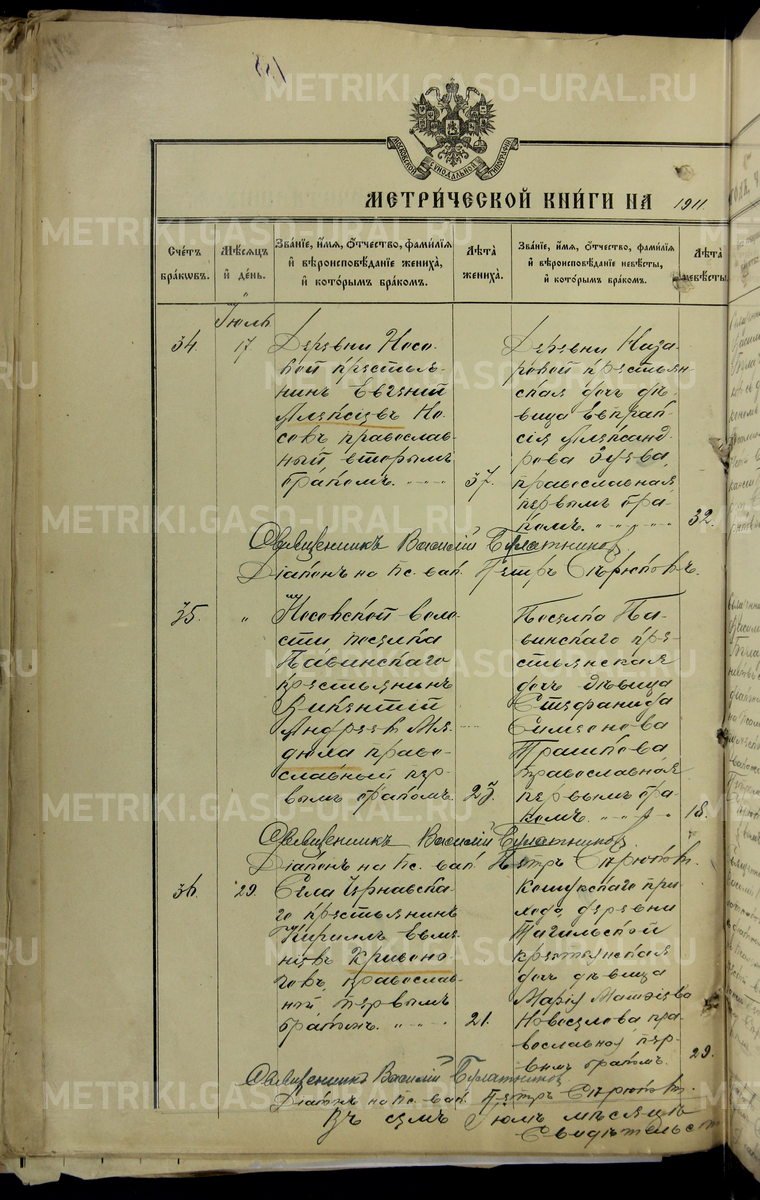 METRIKI.GASO-URAL.RU
МОСКОВСКОЙ СѴНОДАЛЬНОЙ ТИПОГРАФІИ
МЕТРИ́ЧЕСКОЙ КНИ́ГИ НА 1911
Счéтъ брáкωвъ.
Мѣ́сѧцъ и҆ де́нь.
Зва́нїе, и҆́мѧ, ѻ҆́тчество, фами́лїѧ и҆ вѣроисповѣ́данїе жениха̀, и҆ кото́рымъ бра́комъ.
Лѣ́та жениха̀.
Зва́нїе, и҆́мѧ, ѻ҆́тчество, фами́лїѧ и҆ вѣроисповѣ́данїе невѣ́сты, и҆ кото́рымъ бра́комъ.
Лѣ́та невѣ́сты
Іюль
34
17
Деревни Носо-
вой крестья-
нинъ Евгений
Алексіевъ Но-
совъ православ-
ный вторымъ
бракомъ.
37.
Деревни Наза-
ровой крестьян-
ская дочь дѣ-
вица Евпрак-
сія Александ-
рова Зуева,
православная
первымъ бра-
комъ.
32.
Священникъ Василій
Діаконъ на пс. вак. Петръ Скрюковъ.
35.
"
Носовской воло-
сти поселка
Павинскаго
крестьянинъ
Викентій
Андреевъ Мя-
дюла право-
славный пер-
вымъ бракомъ.
23.
Поселка Па-
винскаго кре-
стьянская
дочь дѣвица
Стефанида
Симеонова
Трашкова
православная
первымъ бра-
комъ.
18.
Священникъ Василій
Діаконъ на пс. вак. Петръ Скрюковъ.
36.
29.
Села Чернавска-
го крестьянинъ
Кириллъ Евме-
ніевъ Кривоно-
говъ, православ-
ный первымъ
бракомъ.
21.
Кошукскаго при-
хода деревни
Тагильской
крестьянская
дочь дѣвица
Марія Матѳіева
Новоселова пра-
вославной пер-
вымъ бракомъ.
29.
Священникъ Василій
Діаконъ на пс. вак. Петръ Скрюковъ.
Въ семъ Іюлѣ мѣсяцѣ
Свидѣтельст